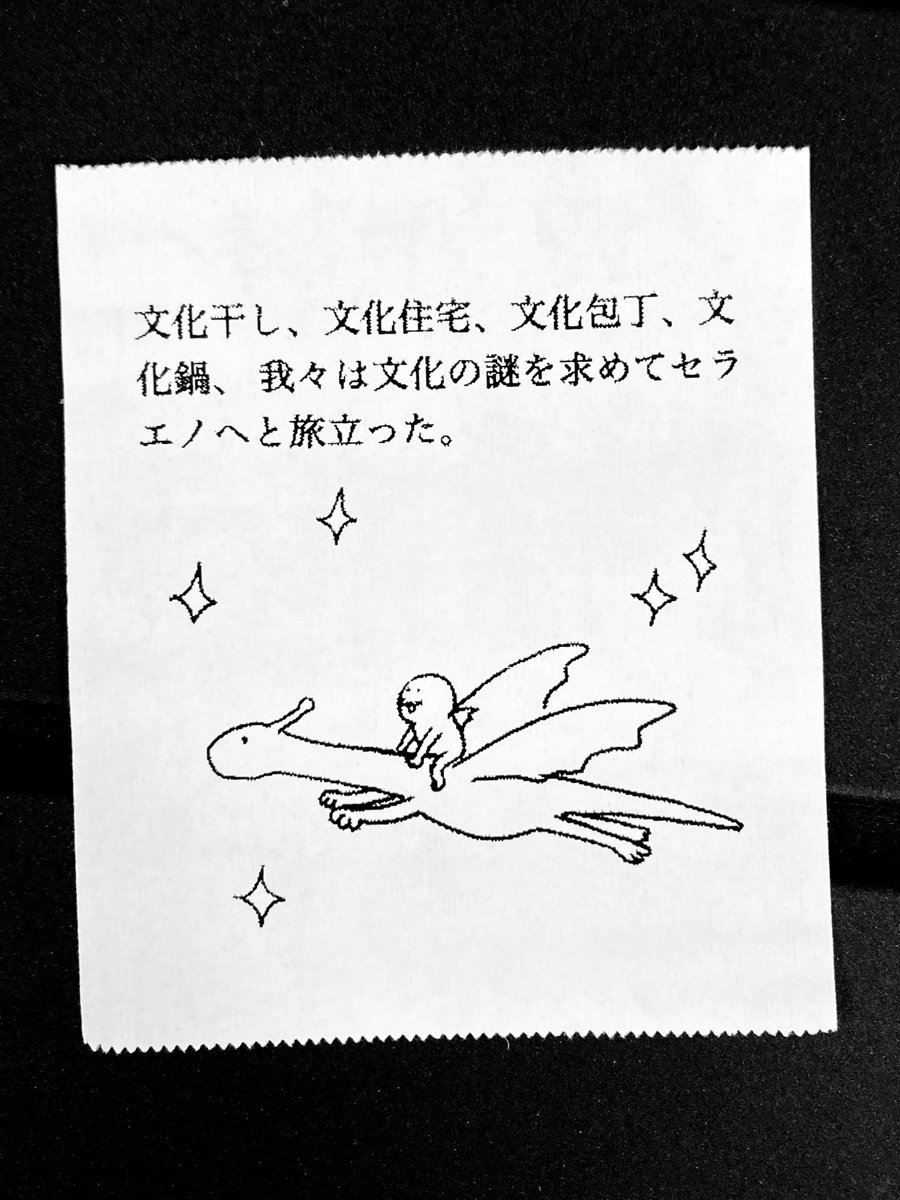 文化干し、文化住宅、文化包丁、文
化鍋、我々は文化の謎を求めてセラ
エノへと旅立った。